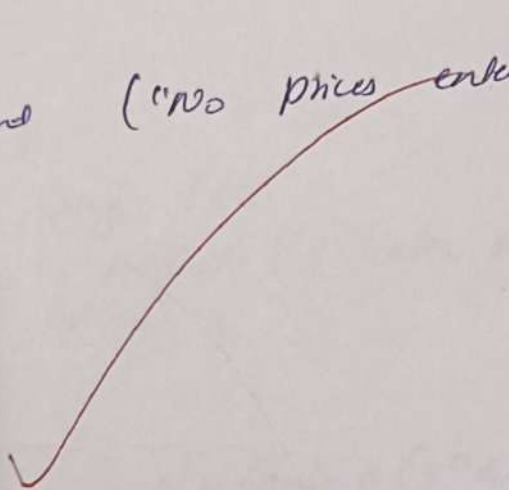 ("No prices ente